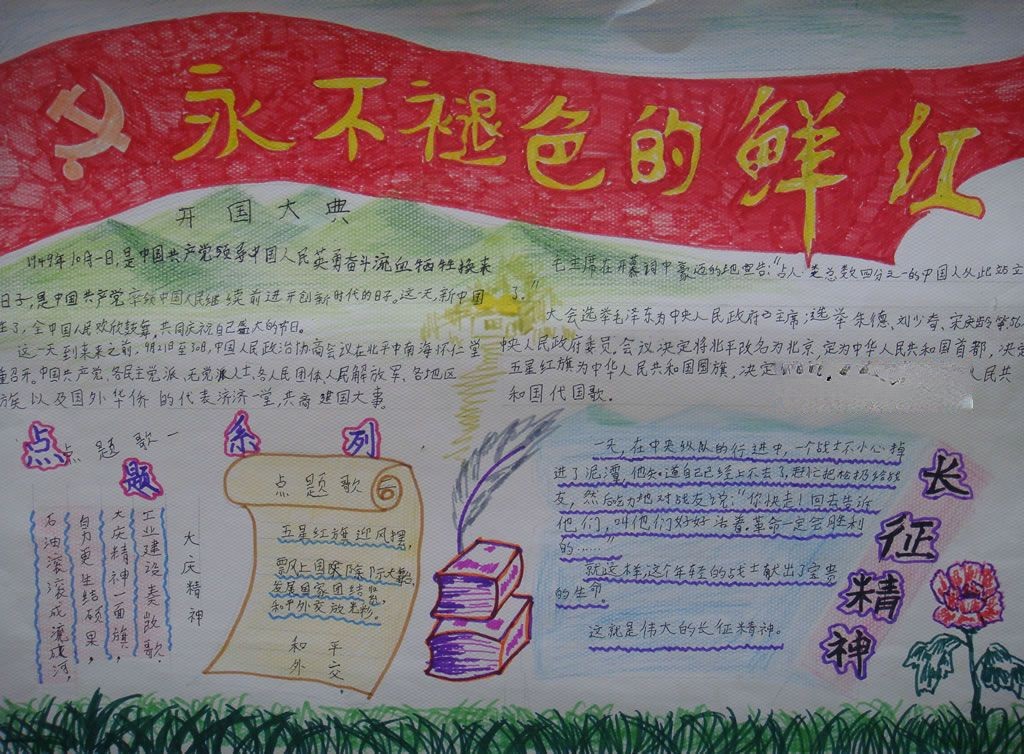 永不褪色的鲜红
开国大典
1949年10月一日,是中国共产党领导中国人民英勇奋斗流血牺牲换来
日子,是中国共产党率领中国人民继续前进开创新时代的日子。这一天,新中国
生了,全中国人民欢欣鼓舞,共同庆祝自己盛大的节日。
这一天到来之前,9月21日至30日,中国人民政治协商会议在北平中南海怀仁堂
召开。中国共产党、各民主党派、无党派人士、各人民团体人民解放军、各地区
族以及国外华侨的代表济济一堂,共商建国大事。
毛主席在开幕词中豪迈的宣告:“占人类总数四分之一的中国人从此站立
了。”
大会选举毛泽东为中央人民政府主席;选举朱德、刘少奇、宋庆龄等56
中央人民政府委员。会议决定将北平改名为北京,定为中华人民共和国首都,决定
五星红旗为中华人民共和国国旗,决定
人民共
和国代国歌。
点题系列
点题歌一
大庆精神
工业建设奏凯歌.
大庆精神一面旗,
自力更生结硕果,
石油滚滚成流成河,
点题歌
五星红旗迎风摆,
飘上国际
发展国家团结
和平外交放光彩。
和平
外交
一天,在中央纵队的行进中,一个战士不小心掉
进了泥潭,他知道自己已经上不去了,赶忙把枪扔给战
友,然后吃力地对战友说:“你快走!回去告诉
他们,叫他们好好活着,革命一定会胜利
的……”
就这样,这个年轻的战士献出了宝贵
的生命。
这就是伟大的长征精神。
长征精神